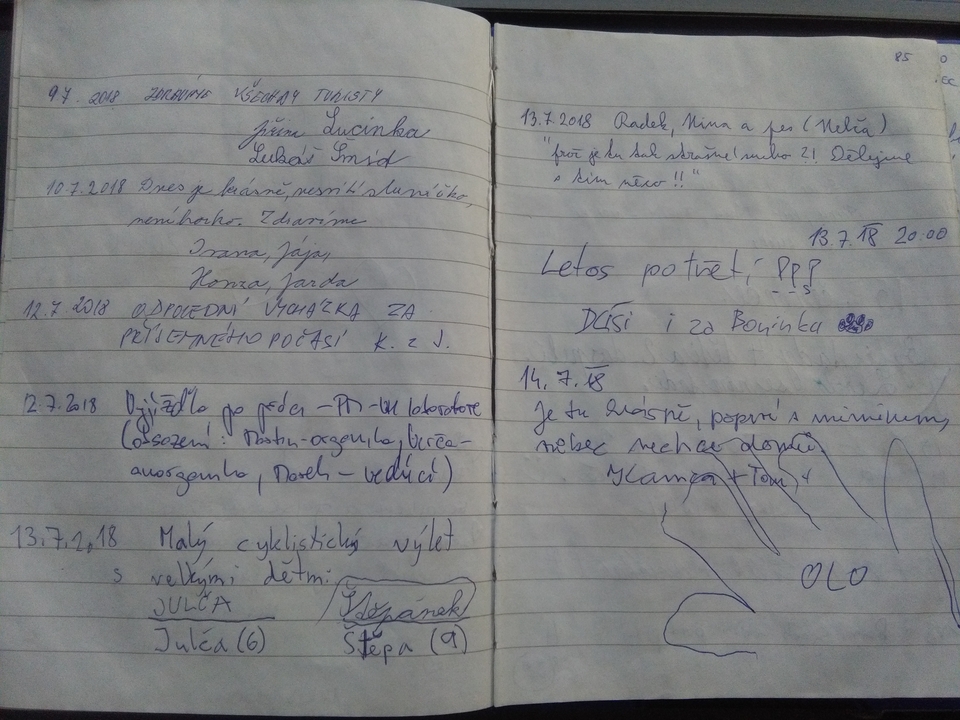 9.7. 2018 ZDRAVÍME VŠECHNY TURISTY
Lucinka
Lukáš Šmíd
10.7.2018 Dnes je krásně, nesvítí sluníčko,
není horko. Zdravíme
Ivana, Jája,
Honza, Jarda
12.7 2018 ODPOLEDNÍ VYCHÁZKA ZA
PŘÍJEMNÉHO POČASÍ K. z J.
12.7.2018 Vyjížďka po práci - laboratoře
(osazení: Martin-organika, Verča-
anorganika, Marek - vedúcí)
13.7.2018 Malý cyklistický výlet
s velkými dětmi
JULČA Štěpánek
Julča (6) Štěpa (9)
85
13.7 2018 Radek, Nina a pes (Nelča)
"proč je tu tak strašné 2! Dělejme
s tím něco!!"
13.7.18 20:00
Letos potřetí, PPP
Děsí i za Boninka
14.7.18
Je tu krásně, poprvé s miminkem,
nechce domů.
Kamča + Tom, +
OLO